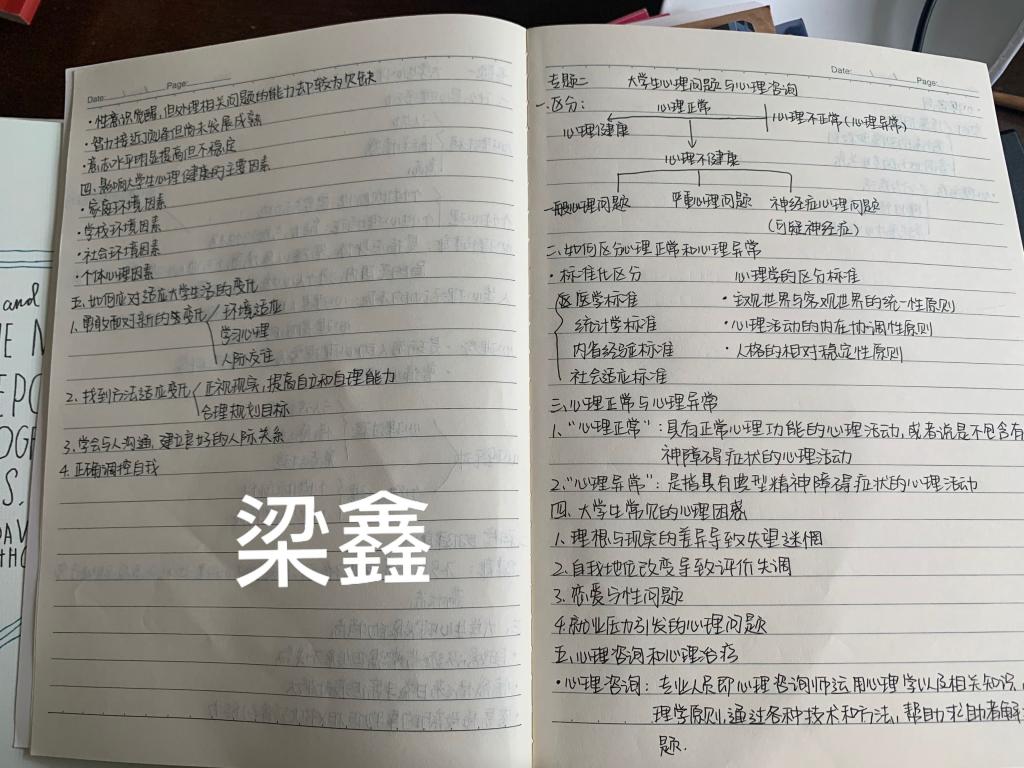 Date:
Page:
·性意识觉醒,但处理相关问题的能力却较为欠缺
·智力接近顶峰但尚未发展成熟
·意志水平明显提高但不稳定
四.影响大学生心理健康的主要因素
·家庭环境因素
·学校环境因素
·社会环境因素
·个体心理因素
五.如何应对适应大学生活的变化
1.勇敢面对新的变化
环境适应
学习心理
人际交往
2.找到方法适应变化
正视现实,提高自立和自理能力
合理规划目标
3.学会与人沟通,建立良好的人际关系
4.正确调控自我
梁鑫
Date:
Page:
专题二 大学生心理问题与心理咨询
一.区分:
心理正常
心理不正常(心理异常)
心理健康
心理不健康
一般心理问题 严重心理问题 神经症心理问题
(可疑神经症)
二.如何区分心理正常和心理异常
·标准化区分 心理学的区分标准
医学标准 ·主观世界与客观世界的统一性原则
统计学标准 ·心理活动的内在协调性原则
内省经验标准 ·人格的相对稳定性原则
社会适应标准
三.心理正常与心理异常
1.“心理正常”:具有正常心理功能的心理活动,或者说是不包含有
神障碍症状的心理活动
2.“心理异常”:是指具有典型精神障碍症状的心理活动
四.大学生常见的心理困惑
1.理想与现实的差异导致失望迷惘
2.自我地位改变导致评价失调
3.恋爱与性问题
4.就业压力引发的心理问题
五.心理咨询和心理治疗
·心理咨询:专业人员即心理咨询师运用心理学以及相关知识,
理学原则,通过各种技术和方法,帮助求助者解
题.
and